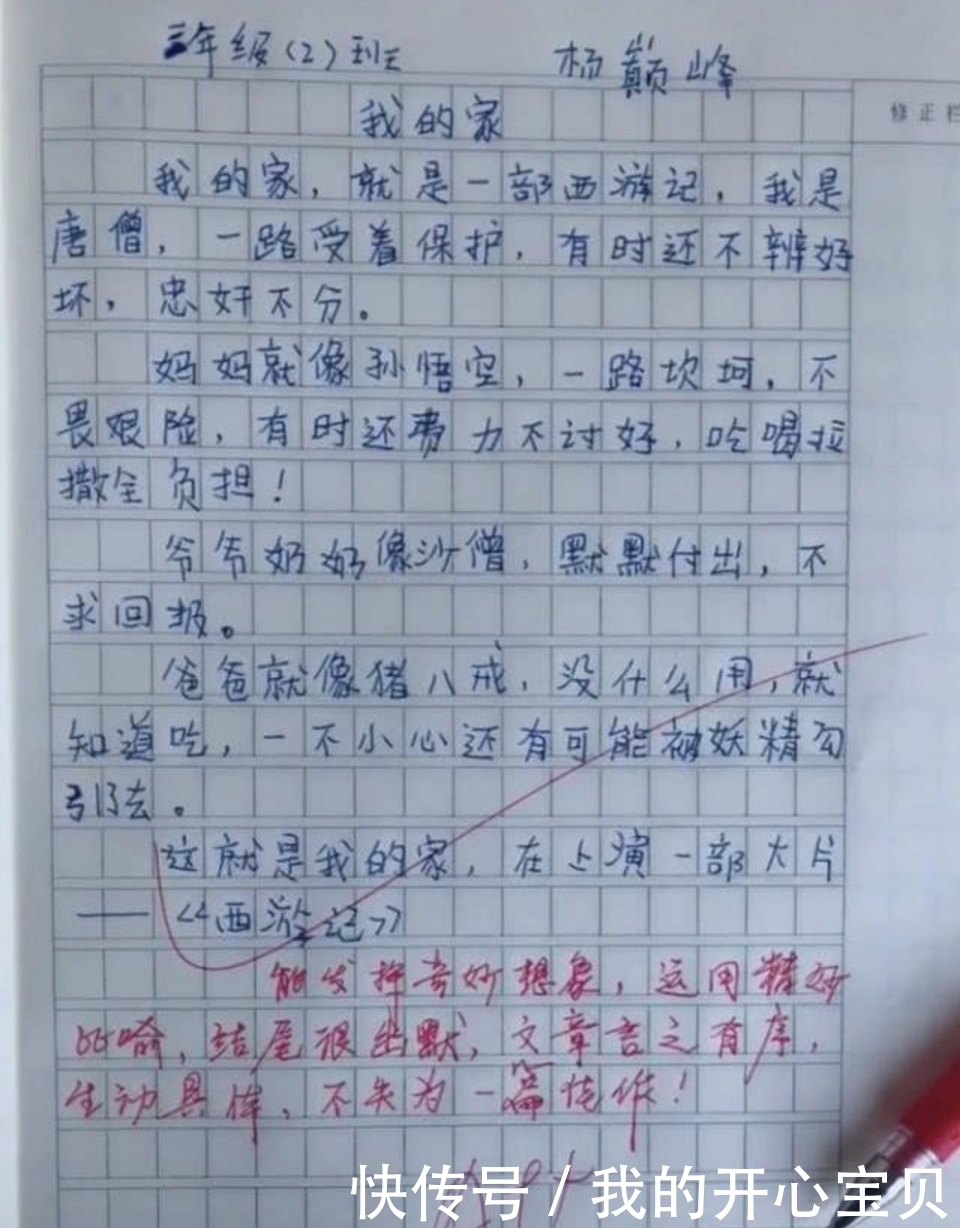 三年级（2）班 杨巅峰
修正栏
我的家
我的家，就是一部西游记，我是
唐僧，一路受着保护，有时还不辨好
坏，忠奸不分。
妈妈就像孙悟空，一路坎坷，不
畏艰险，有时还费力不讨好，吃喝拉
撒全负担！
爷爷奶奶像沙僧，默默付出，不
求回报。
爸爸就像猪八戒，没什么用，就
知道吃，一不小心还有可能被妖精勾
引了去。
这就是我的家，在上演一部大片
——《西游记》
能发挥奇妙想象，运用精妙
比喻，结尾很幽默，文章言之有序，
生动具体，不失为一篇佳作！
快传号/我的开心宝贝